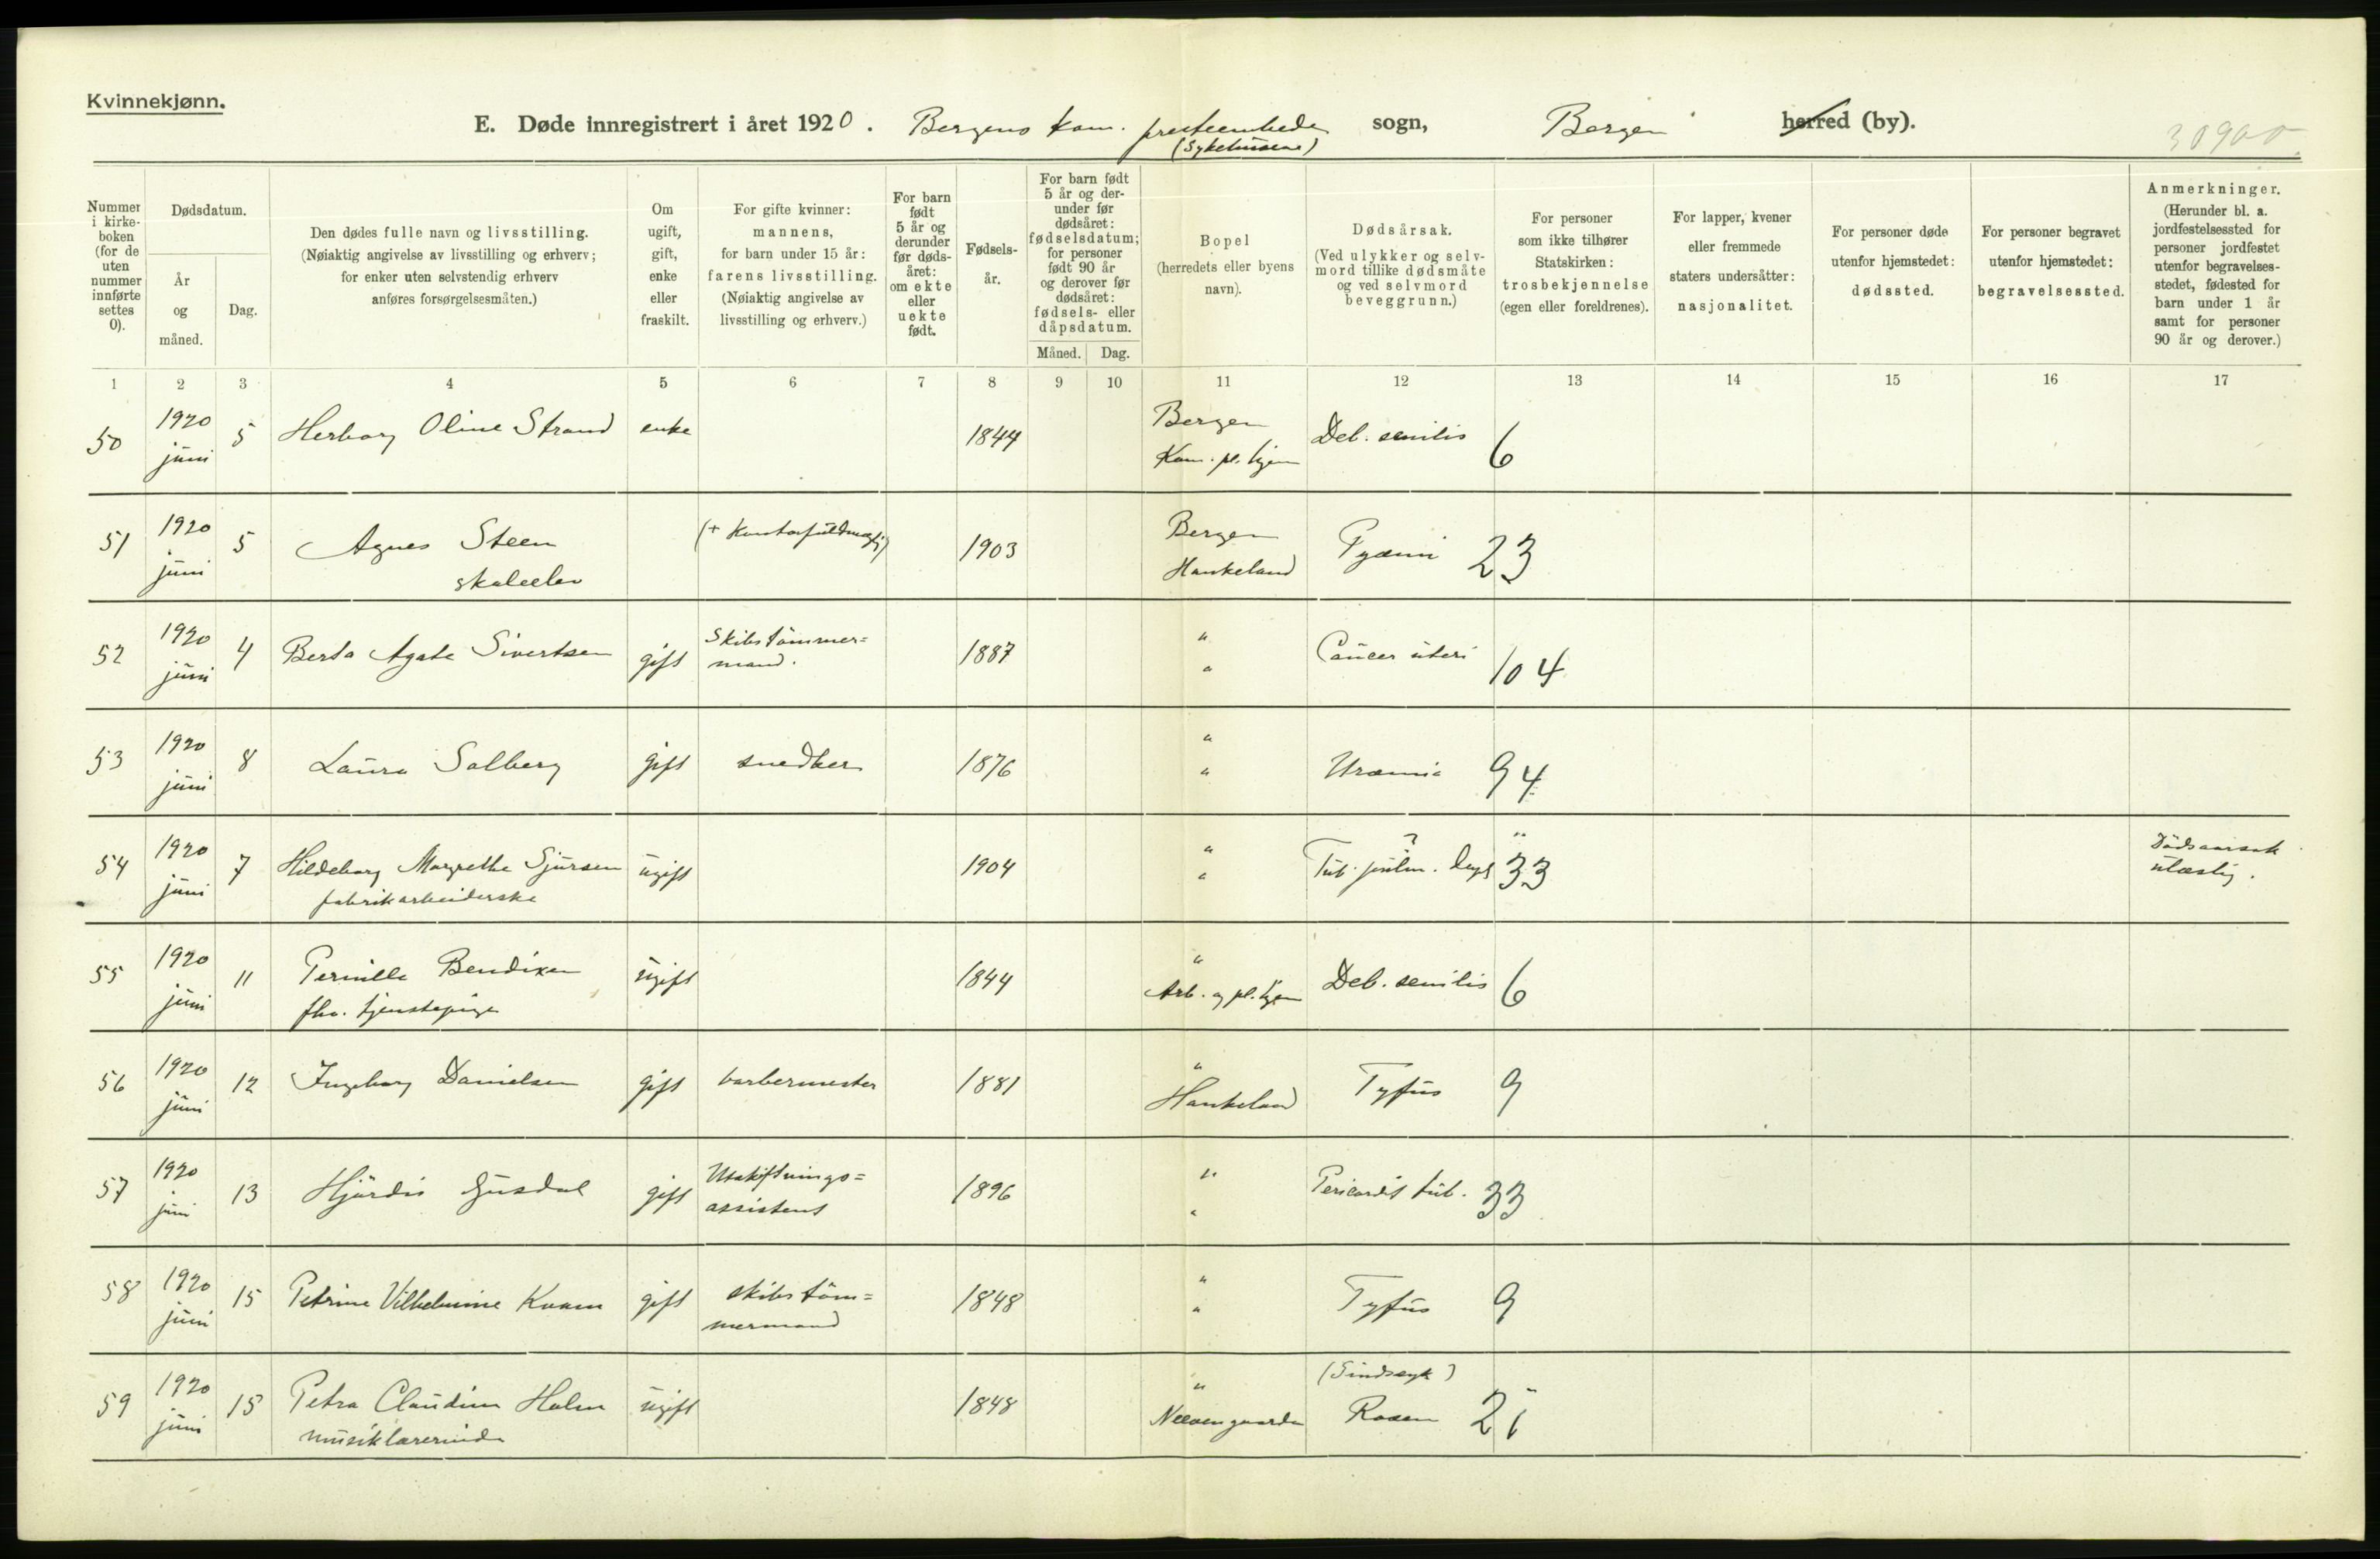 Kvinnekjønn.
E. Døde innregistrert i året 1920. Bergens kom. presteembede sogn, Bergen herred (by). 30900
(Sykehusene)
Nummer i kirke-boken (for de uten nummer innførte settes 0).
Dødsdatum.
År og måned.
Dag.
Den dødes fulle navn og livsstilling.
(Nøiaktig angivelse av livsstilling og erhverv;
for enker uten selvstendig erhverv
anføres forsørgelsesmåten.)
Om ugift, gift, enke eller fraskilt.
For gifte kvinner:
mannens,
for barn under 15 år:
farens livsstilling.
(Nøiaktig angivelse av
livsstilling og erhverv.)
For barn født 5 år og derunder før døds-året: om ekte eller uekte født.
Fødsels-år.
For barn født 5 år og der-under før dødsåret: fødselsdatum; for personer født 90 år og derover før dødsåret: fødsels- eller dåpsdatum.
Måned. Dag.
Bopel
(herredets eller byens
navn).
Dødsårsak.
(Ved ulykker og selv-
mord tillike dødsmåte
og ved selvmord
beveggrunn.)
For personer
som ikke tilhører
Statskirken:
trosbekjennelse
(egen eller foreldrenes).
For lapper, kvener
eller fremmede
staters undersåtter:
nasjonalitet.
For personer døde
utenfor hjemstedet:
dødssted.
For personer begravet
utenfor hjemstedet:
begravelsessted.
Anmerkninger.
(Herunder bl. a.
jordfestelsessted for
personer jordfestet
utenfor begravelses-
stedet, fødested for
barn under 1 år
samt for personer
90 år og derover.)
1 2 3 4 5 6 7 8 9 10 11 12 13 14 15 16 17
50 1920 juni 5 Herborg Oline Strand enke 1844 Bergen Kom. pl. hjem Deb. senilis 6
51 1920 juni 5 Agnes Steen (+ Kontorfuldmægtig) 1903 Bergen Haukeland Pyæmi 23
skoleelev
52 1920 juni 4 Berta Agate Sivertsen gift Skibstømmer=mand. 1887 " " Cancer uteri 104
53 1920 juni 8 Laura Solberg gift snedker 1876 " " Uræmia 94
54 1920 juni 7 Hildeborg Margrethe Sjursen ugift 1904 " " Tub. pulm. ? 33 Dödsaarsak ulæslig.
fabrikarbeiderske
55 1920 juni 11 Pernille Bendixen ugift 1844 " Arb. og pl. hjem Deb. senilis 6
fhv. tjenestepige
56 1920 juni 12 Ingeborg Danielsen gift barbermester 1881 " Haukeland Tyfus 9
57 1920 juni 13 Hjördis Gusdal gift Utskiftnings=assistent 1896 " " Pericardit tub. 33
58 1920 juni 15 Petrine Vilhelmine Kvam gift skibstøm=mermand 1848 " " Tyfus 9
59 1920 juni 15 Petra Claudine Holm ugift 1848 " Neevengaarden (Sindssyk) Rosen 21
musiklærerinde